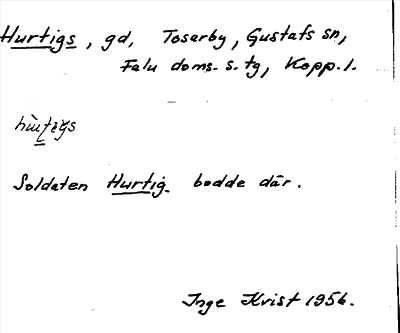 Hurtigs, gd, Tosarby, Gustafs sn,
Falu doms. s. tg, Kopp. l.
Soldaten Hurtig bodde där.
Inge Kvist 1956.